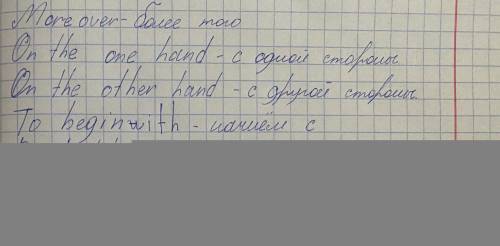 Moreover-более того
On the one hand - с одной стороны
On the other hand - с другой стороны
To begin with - начнём с